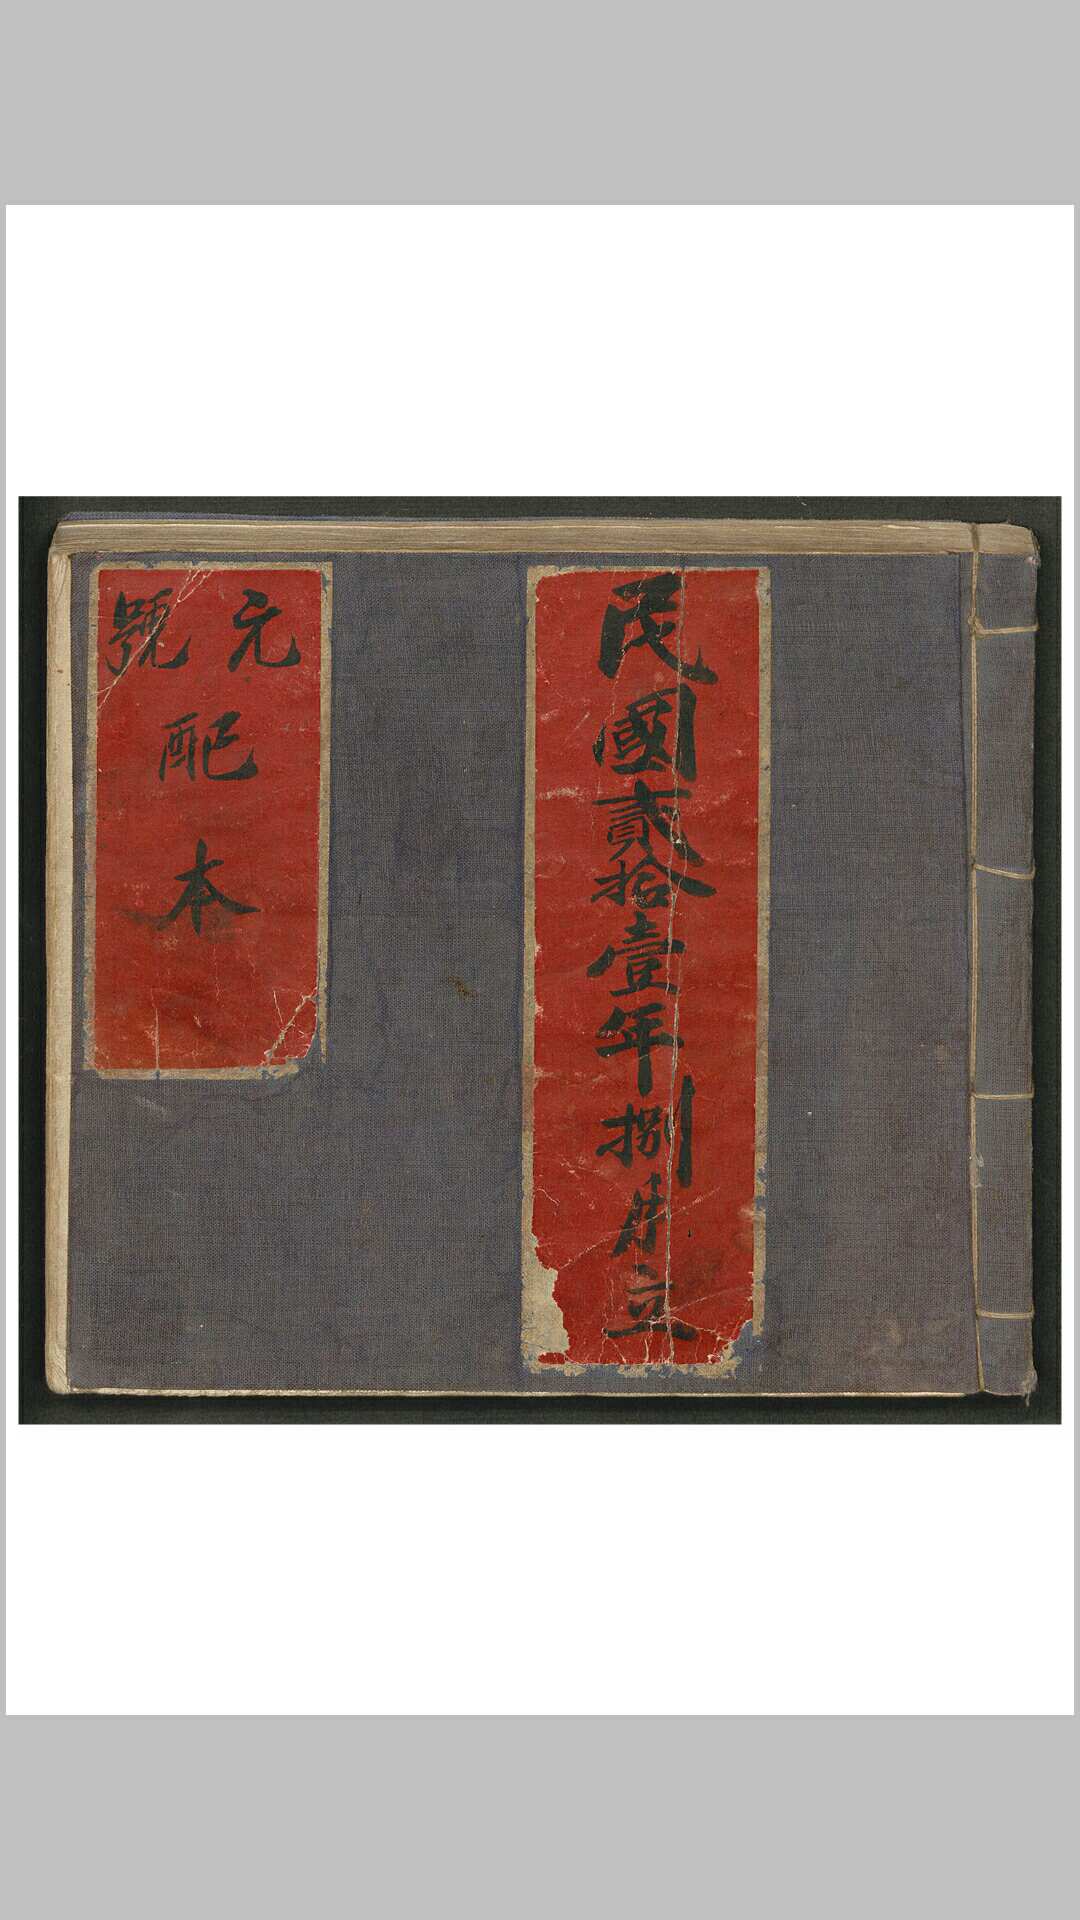 民國貳拾壹年捌月立
元號
配
本